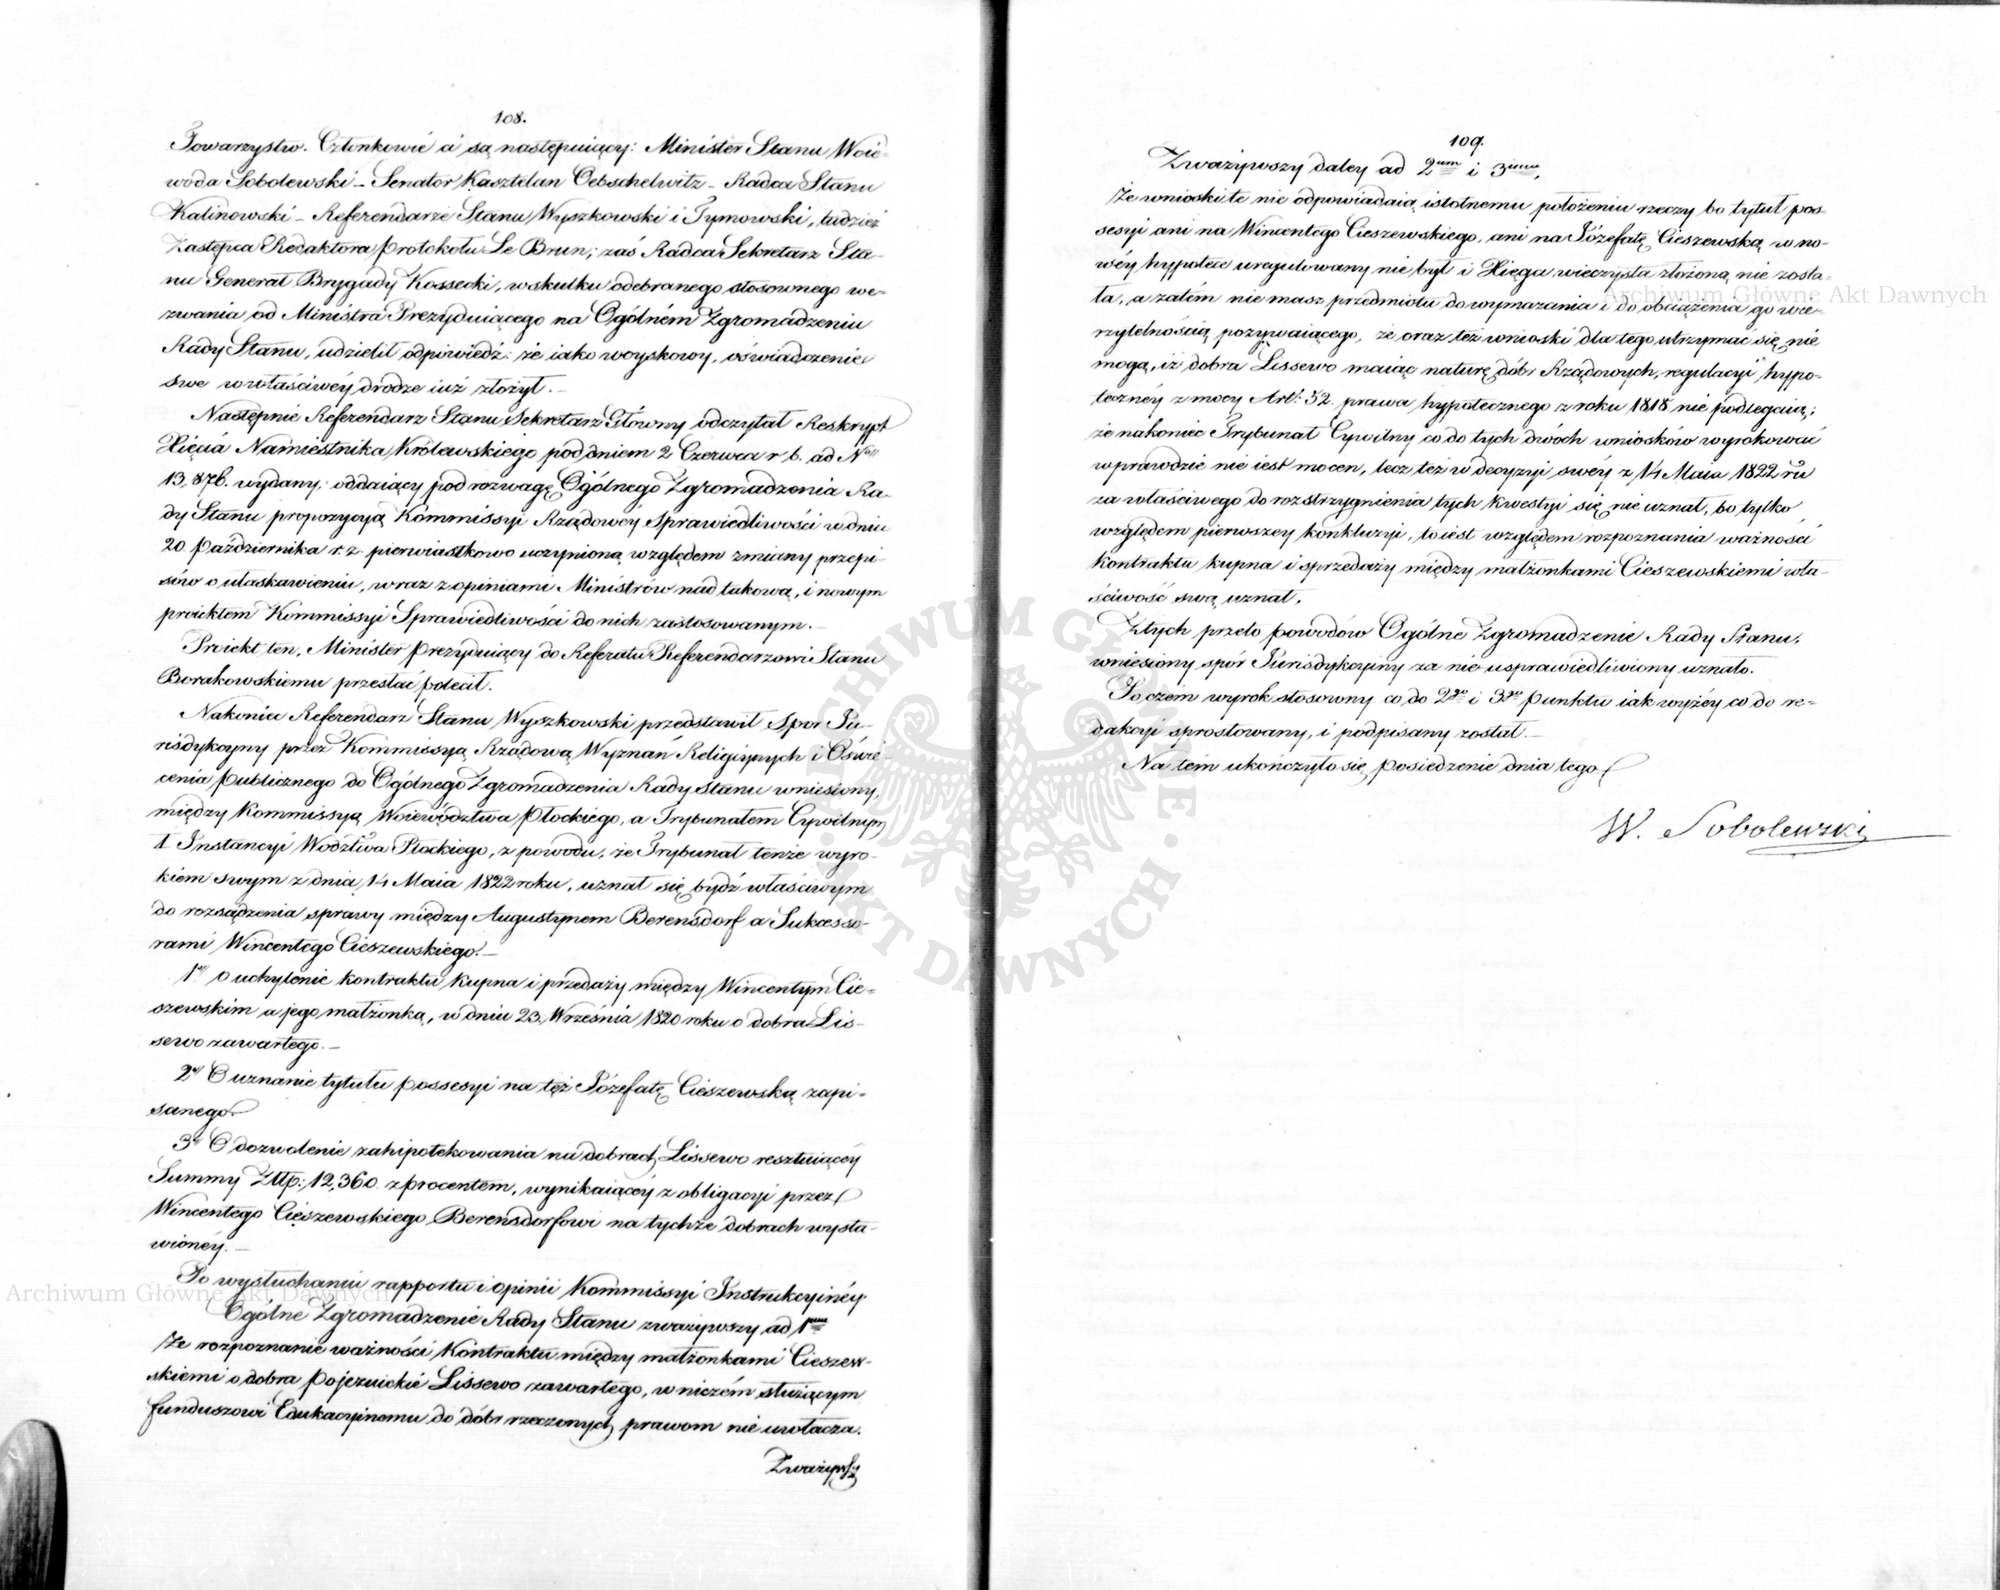 108.
Towarzystw. Członkowie ci są następuiący: Minister Stanu Woie-
woda Sobolewski – Senator Kasztelan Oebschelwitz – Radca Stanu
Kalinowski – Referendarze Stanu Wyszkowski i Tymowski, tudzież
Zastępca Redaktora Protokołu Le Brun; zaś Radca Sekretarz Sta-
nu Generał Brygady Kossecki, w skutku odebranego stosownego we-
zwania od Ministra Prezyduiącego na Ogólném Zgromadzeniu
Rady Stanu, udzielił odpowiedź: że iako woyskowy, oświadczenie
swe w właściwéy drodze iuż złożył. –
Następnie Referendarz Stanu Sekretarz Główny odczytał Reskrypt
Xięcia Namiestnika Królewskiego pod dniem 2 Czerwca r. b. ad Nro
13,876. wydany; oddaiący pod rozwagę Ogólnego Zgromadzenia Ra-
dy Stanu propozycyą Kommissyi Rządowéy Sprawiedliwości w dniu
20. Października r. z. pierwiastkowo uczynioną względem zmiany przepi-
sów o ułaskawieniu, wraz z opiniami Ministrów nad takową, i nowym
proiektem Kommissyi Sprawiedliwości do nich zastosowanym. –
Proiekt ten, Minister Prezyduiący do Referatu Referendarzowi Stanu
Borakowskiemu przesłać polecił.
Nakoniec Referendarz Stanu Wyszkowski przedstawił Spór Ju-
risdykcyiny przez Kommissyą Rządową Wyznań Religiynych i Oświe-
cenia publicznego do Ogólnego Zgromadzenia Rady Stanu wniesiony,
między Kommissyą Woiewództwa Płockiego, a Trybunałem Cywilnym
I Instancyi Wodztwa Płockiego, z powodu, że Trybunał tenże wyro-
kiem swym z dnia 14 Maia 1822 roku, uznał się bydź właściwym
do rozsądzenia sprawy między Augustynem Berensdorf a Sukcesso-
rami Wincentego Cieszewskiego. –
1o O uchylenie kontraktu kupna i przedaży między Wincentym Cie-
szewskim a jego małżonką, w dniu 23. Września 1820 roku o dobra Lis-
sewo zawartego. –
2o O uznanie tytułu possesyi na téż Józefatę Cieszewską zapi-
sanego
3o O dozwolenie zahipotekowania na dobrach Lissewo resztuiącéy
Summy Złtp: 12,360 z procentem, wynikaiącéy z obligacyi przez
Wincentego Cieszewskiego Berensdorfowi na tychże dobrach wysta-
wionéy. –
Po wysłuchaniu rapportu i opinii Kommissyi Instrukcyinéy
Ogólne Zgromadzenie Rady Stanu zważywszy ad 1mum
Że rozpoznanie ważności Kontraktu między małżonkami Cieszew-
skiemi o dobra Pojezuickie Lissewo zawartego, w niczém służącym
funduszowi Edukacyinemu do dóbr rzeczonych prawom nie uwłacza.
Zważywszy
109.
Zważywszy daley ad 2um i 3ium,
Że wnioski te nie odpowiadaią istotnemu położeniu rzeczy bo tytuł pos-
sesyi ani na Wincentego Cieszewskiego, ani na Józefatę Cieszewską w no-
wéy hypotece uregulowany nie był i Xięga wieczysta złożoną nie zosta-
ła, a zatém nie masz przedmiotu do wymazania i do obciążenia go wie-
rzytelnością pozywaiącego, że oraz też wnioski dla tego utrzymać się nie
mogą, iż dobra Lissewo maiąc naturę dóbr Rządowych, regulacyi hypo-
teczney z mocy Artu: 52. prawa hypotecznego z roku 1818 nie podlegaią;
że nakoniec Trybunał Cywilny co do tych dwóch wniosków wyrokować
wprawdzie nie iest mocen, lecz też w decyzyi swéy z 14 Maia 1822 ru
za właściwego do rozstrzygnienia tych kwestyi się nie uznał, bo tylko
względem pierwszey konkluzyi, to iest względem rozpoznania ważności
kontraktu kupna i sprzedaży między małżonkami Cieszewskiemi wła-
ściwość swą uznał,
Z tych przeto powodów Ogólne Zgromadzenie Rady Stanu,
wniesiony spór Jurisdykcyiny za nie usprawiedliwiony uznało.
Po czém wyrok stosowny co do 2go i 3go punktu iak wyżéy co do re-
dakcyi sprostowany, i podpisany został. –
Na tém ukończyło się posiedzenie dnia tego
W. Sobolewski
Archiwum Główne Akt Dawnych
Archiwum Główne Akt Dawnych
ARCHIWUM GŁÓWNE AKT DAWNYCH